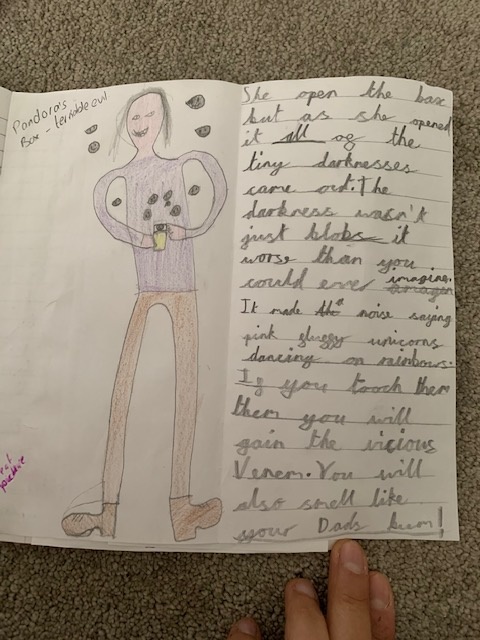 Pandora's
Box - terrible evil
She open the box
but as she opened
it all og the
tiny darknesses
came out. The
darkness wasn't
just blobs it
worse than you
could ever imagine.
It made the noise saying
pink gluggy unicorns
dancing on rainbows.
Ig you tooch them
them you will
gain the vicious
Venem. You will
also smell like
your Dads bum!